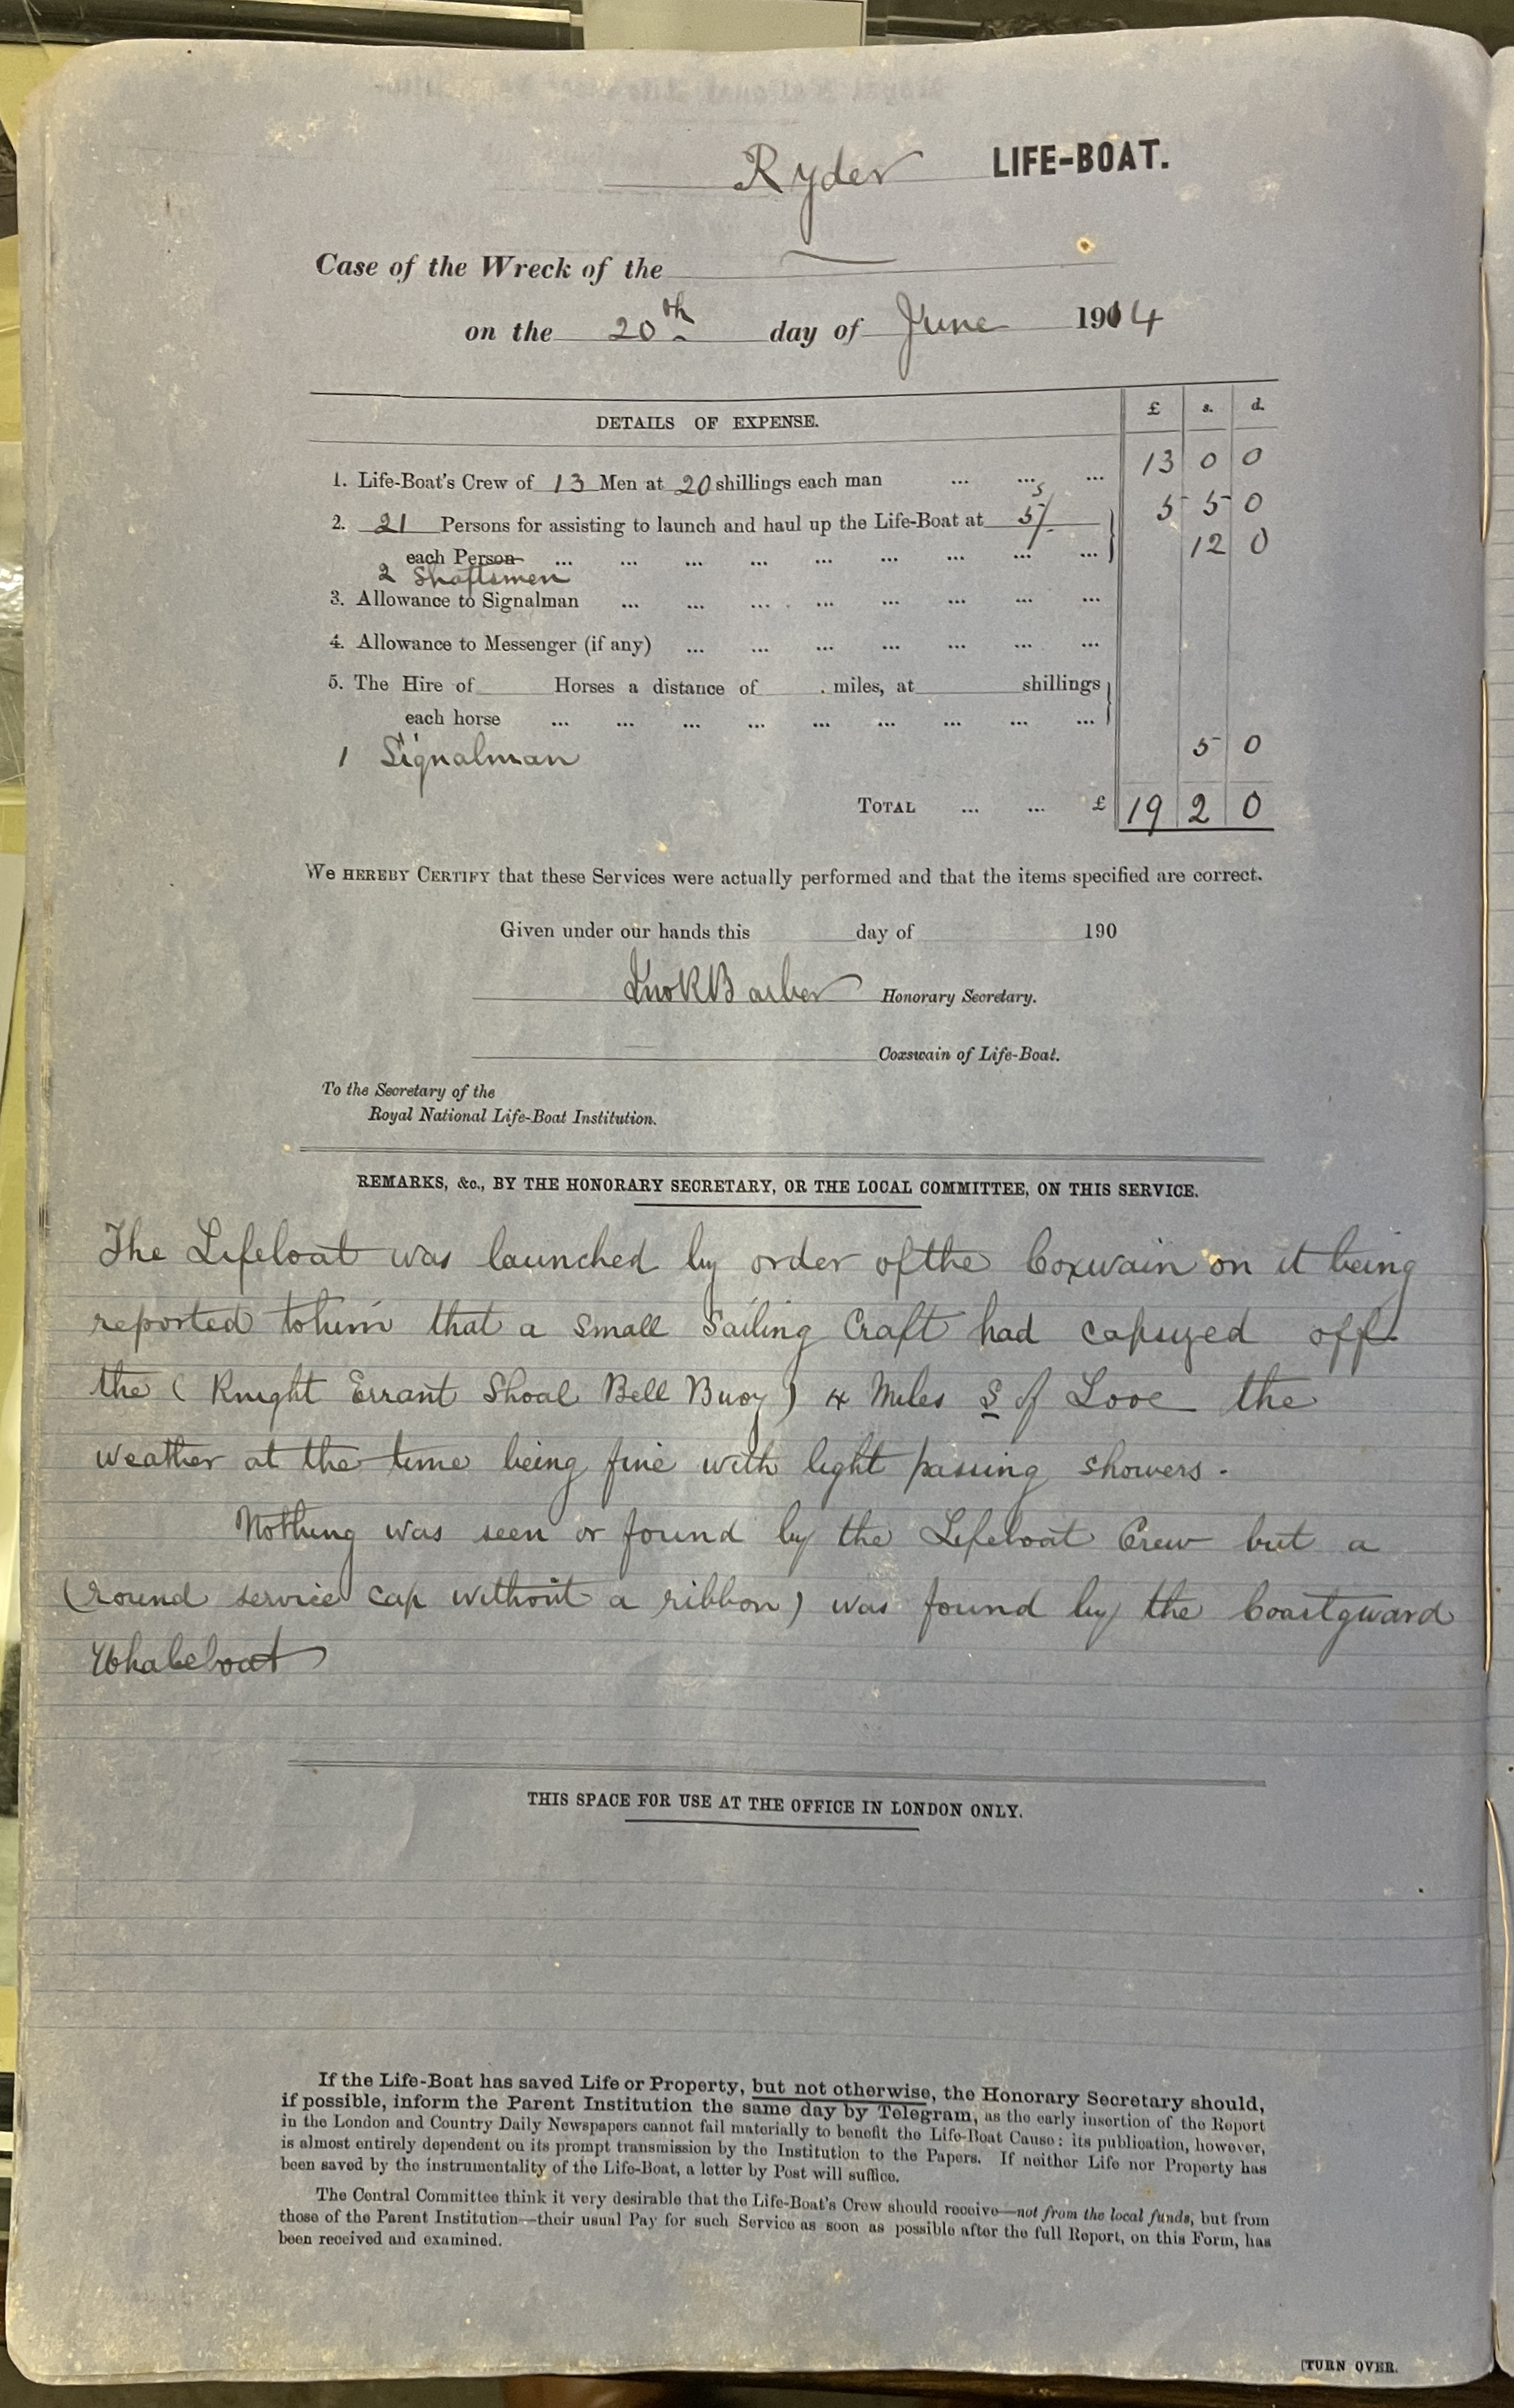 Ryder LIFE-BOAT.
Case of the Wreck of the —
on the 20th day of June 1914
DETAILS OF EXPENSE. £ s. d.
1. Life-Boat's Crew of 13 Men at 20 shillings each man ... ... ... 13 0 0
2. 21 Persons for assisting to launch and haul up the Life-Boat at 5/s 5 5 0
each Person ... ... ... ... ... ... ... ... ... 12 0
2 Shaftsmen
3. Allowance to Signalman ... ... ... ... ... ... ... ...
4. Allowance to Messenger (if any) ... ... ... ... ... ... ...
5. The Hire of Horses a distance of miles, at shillings
each horse ... ... ... ... ... ... ... ... ...
1 Signalman 5 0
TOTAL ... ... £ 19 2 0
We HEREBY CERTIFY that these Services were actually performed and that the items specified are correct.
Given under our hands this day of 190
Jno R Barber Honorary Secretary.
Coxswain of Life-Boat.
To the Secretary of the
Royal National Life-Boat Institution.
REMARKS, &c., BY THE HONORARY SECRETARY, OR THE LOCAL COMMITTEE, ON THIS SERVICE.
The Lifeboat was launched by order of the Coxwain on it being
reported to him that a small Sailing Craft had capsized off
the (Knight Errant Shoal Bell Buoy) 4 Miles S of Looe the
weather at the time being fine with light passing showers.
Nothing was seen or found by the Lifeboat Crew but a
(round service cap without a ribbon) was found by the Coastguard
Whaleboat
THIS SPACE FOR USE AT THE OFFICE IN LONDON ONLY.
If the Life-Boat has saved Life or Property, but not otherwise, the Honorary Secretary should,
if possible, inform the Parent Institution the same day by Telegram, as the early insertion of the Report
in the London and Country Daily Newspapers cannot fail materially to benefit the Life-Boat Cause: its publication, however,
is almost entirely dependent on its prompt transmission by the Institution to the Papers. If neither Life nor Property has
been saved by the instrumentality of the Life-Boat, a letter by Post will suffice.
The Central Committee think it very desirable that the Life-Boat's Crew should receive—not from the local funds, but from
those of the Parent Institution—their usual Pay for such Service as soon as possible after the full Report, on this Form, has
been received and examined.
[TURN OVER.